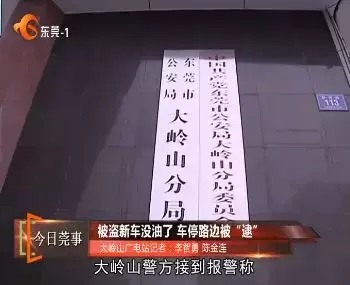 东莞-1
东莞市
公安局
大岭山分局
中国共产党东莞市公安局大岭山分局委员
113
今日莞事
被盗新车没油了 车停路边被“逮”
大岭山广电站记者：李智勇 陈金连
大岭山警方接到报警称